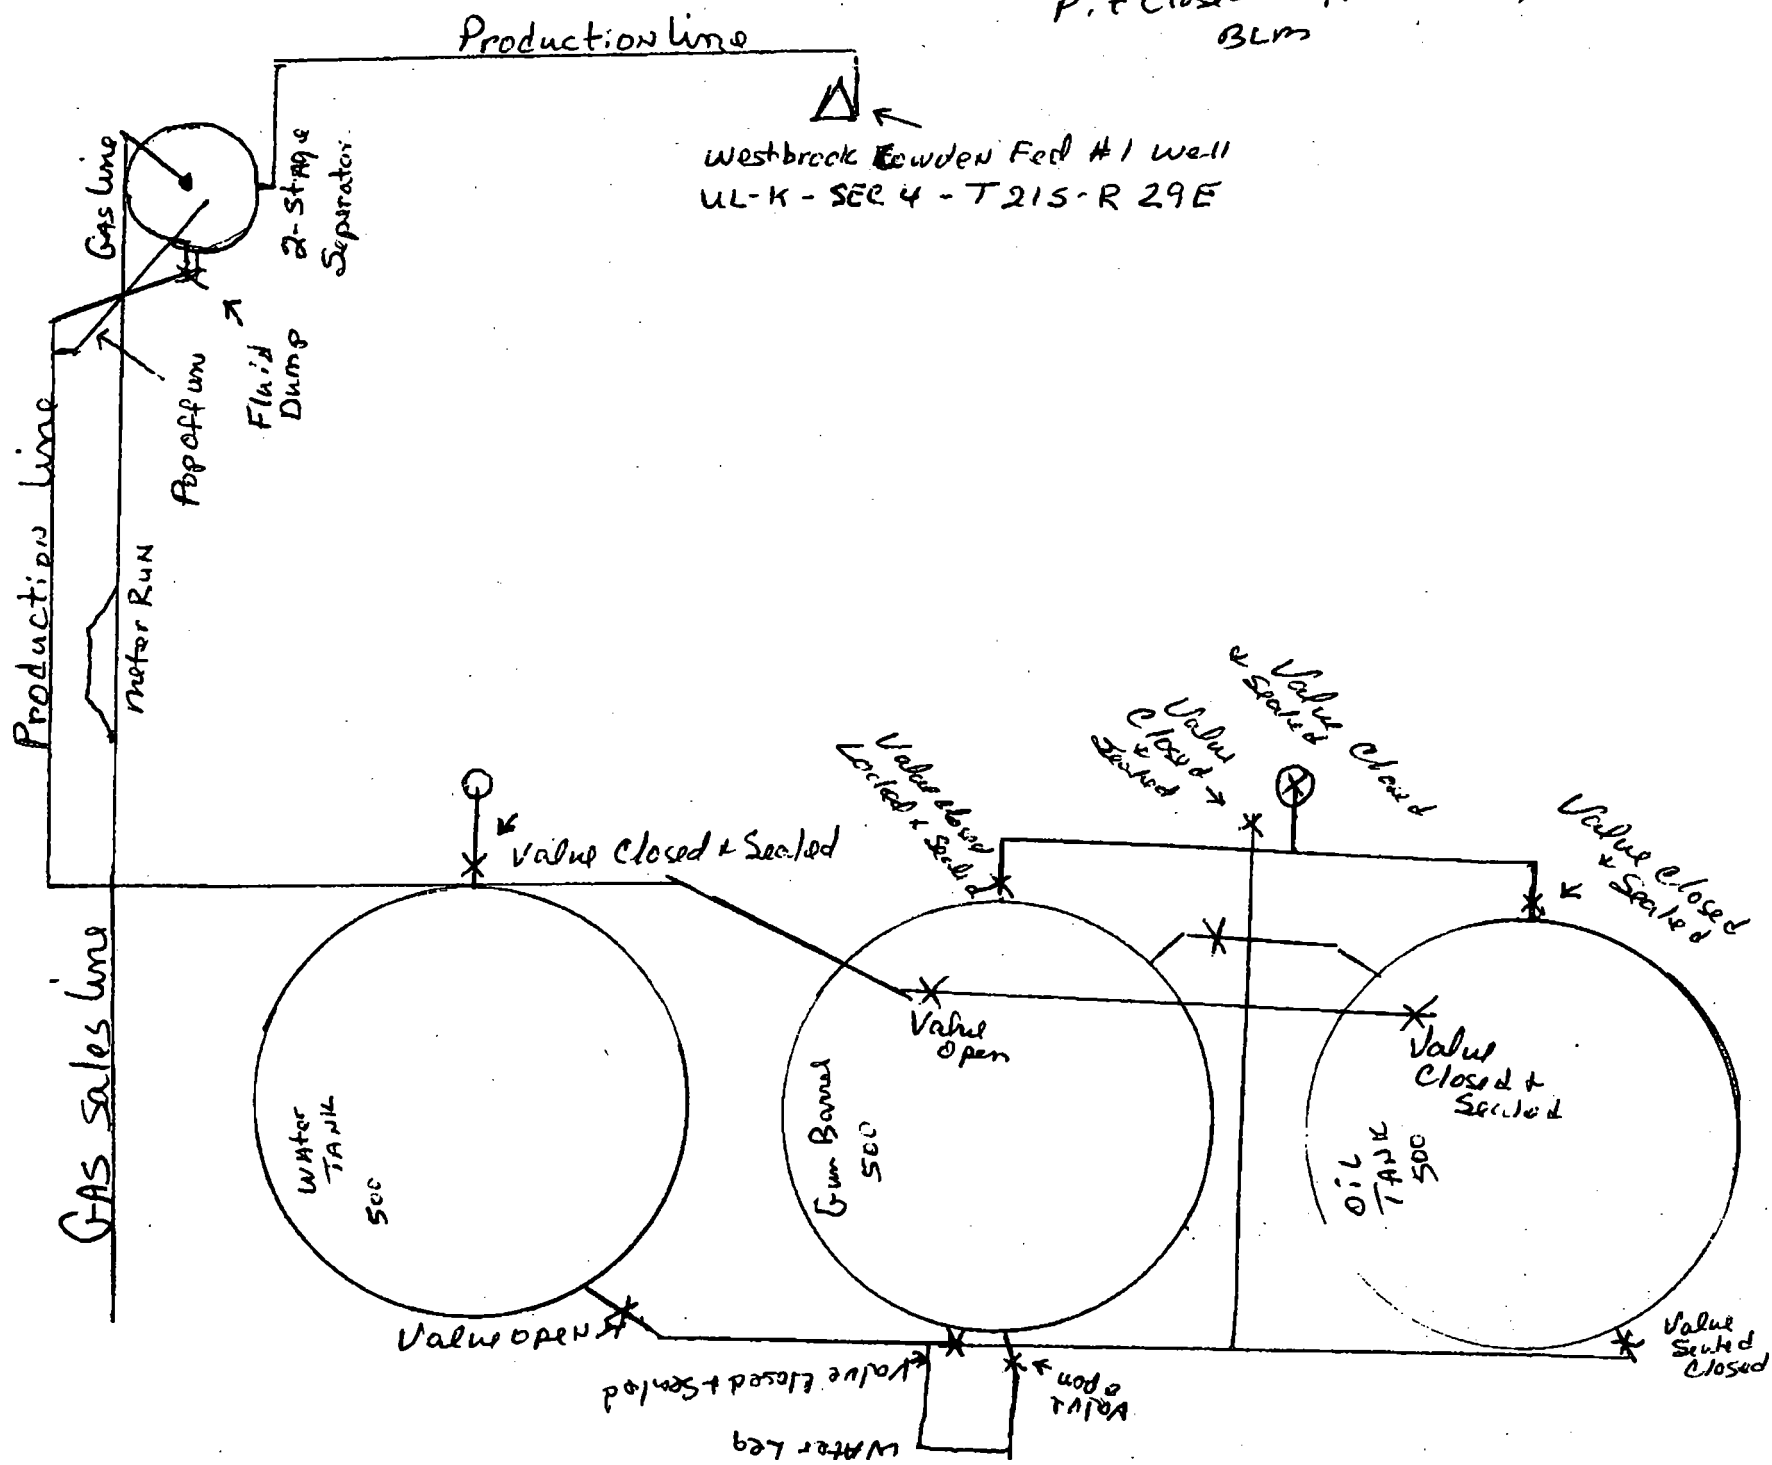 P.t Closed
BLM
Production line
Westbrook Cowden Fed #1 Well
UL-K - SEC 4 - T 21S - R 29E
GAS line
2-Stage
Separator
Fluid
Dump
Popoff line
Production line
Meter Run
GAS Sales line
Valve Closed & Sealed
Valve Closed
Locked & Sealed
Valve
Closed
&
Sealed
Valve Closed
& Sealed
Valve Closed
& Sealed
Valve
Open
Valve
Closed &
Sealed
Water
TANK
500
Gun Barrel
500
OIL
TANK
500
Valve OPEN
Valve Closed & Sealed
Valve
Open
Water Leg
Valve
Sealed
Closed